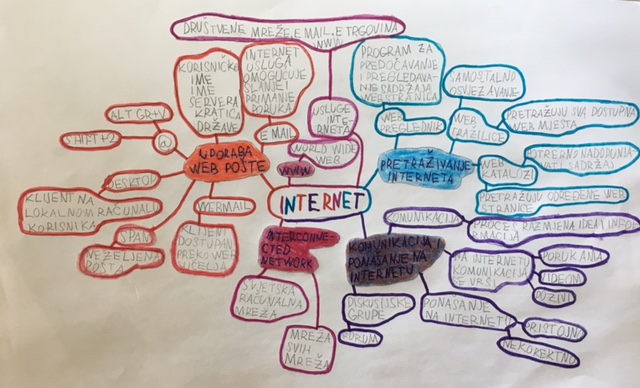 DRUŠTVENE MREŽE, E MAIL, E TRGOVINA
WWW
KORISNIČKO
IME
IME
SERVERA
KRATICA
DRŽAVE
INTERNET
USLUGA
OMOGUĆUJE
SLANJE I
PRIMANJE
PORUKA
E MAIL
ALT GR+V
SHIFT+2
@
UPORABA
WEB POŠTE
DESKTOP
KLIJENT NA
LOKALNOM RAČUNALU
KORISNIKA
SPAM
NEŽELJENA
POŠTA
WEBMAIL
KLIJENT
DOSTUPAN
PREKO WEB
SUČELJA
USLUGE
INTE-
RNETA
WORLD WIDE
WEB
WWW
INTERNET
PROGRAM ZA
PREDOČAVANJE
I PREGLEDAVA-
NJE SADRŽAJA
WEB STRANICA
WEB
PREGLEDNIK
PRETRAŽIVANJE
INTERNETA
SAMOSTALNO
OSVJEŽAVANJE
WEB
TRAŽILICE
PRETRAŽUJU SVA DOSTUPNA
WEB MJESTA
WEB
KATALOZI
POTREBNO NADOPUNJA
VATI SADRŽAJ
PRETRAŽUJU ODREĐENE WEB
STRANICE
INTERCONNE-
CTED
NETWORK
SVJETSKA
RAČUNALNA
MREŽA
MREŽA
SVIH
MREŽA
KOMUNIKACIJA I
PONAŠANJE NA
INTERNETU
KOMUNIKACIJA
PROCES RAZMJENA IDEJA I INFOR
MACIJA
NA INTERNETU
KOMUNIKACIJA
SE VRŠI
PORUKAMA
VIDEOM
POZIVI
PONAŠANJE
NA INTERNETU
PRISTOJNO
NEKOREKTNO
DISKUSIJSKE
GRUPE
FORUM